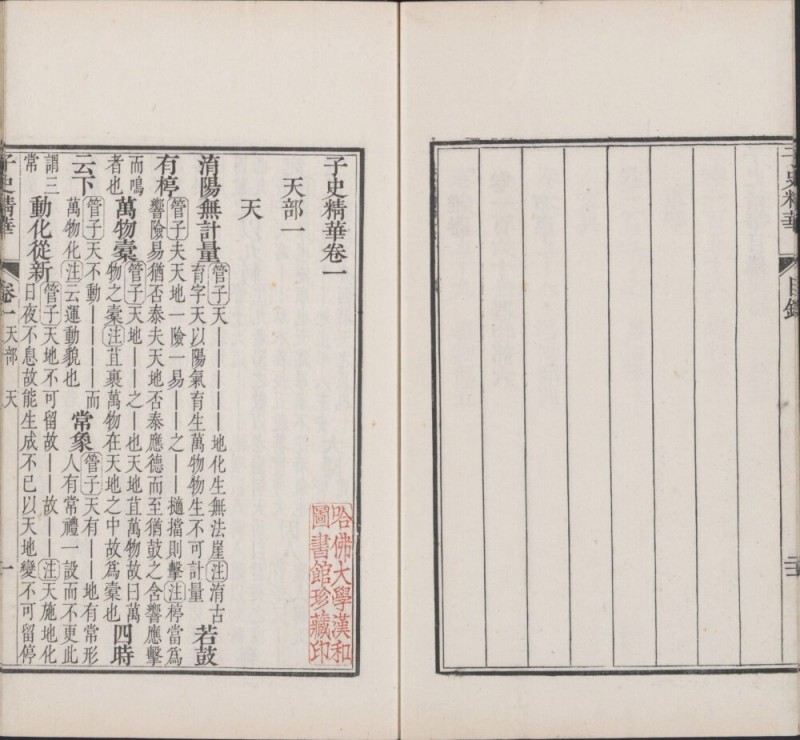 子史精華 目錄
子史精華卷一
哈佛大學漢和
圖書館珍藏印
天部一
天
淯陽無計量
管子天—————地化生無法崖注淯古
育字天以陽氣育生萬物物生不可計量
若鼓
有楟
管子夫天地一險一易——之——擿擋則擊注楟當為
響險易猶否泰夫天地否泰應德而至猶鼓之含響應擊
而鳴
者也
萬物橐
管子天地——之—也天地苴萬物故曰萬
物之橐注苴裹萬物在天地之中故為橐也
四時
云下
管子天不動————而
萬物化注云運動貌也
常象
管子天有——地有常形
人有常禮一設而不更此
謂三
常
動化從新
管子天地不可留故——故——注天施地化
日夜不息故能生成不已以天地變不可留停
子史精華 卷一 天部 天 一